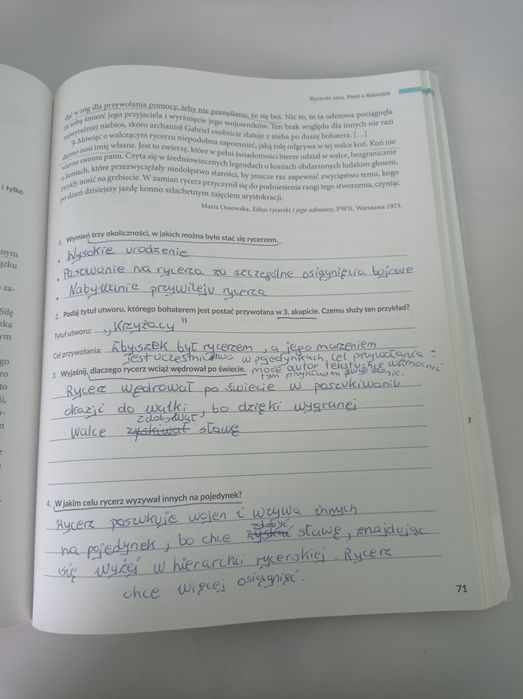 i tylko
nym
ązku
za-
Siłę
zka
ym
go
ro
to
Rycerski etos. Pieśń o Rolandzie
dąć w róg dla przywołania pomocy, żeby nie pomyślano, że się boi. Nic to, że ta odmowa pociągnęła
za sobą śmierć jego przyjaciela i wyrżnięcie jego wojowników. Ten brak względu dla innych nie razi
najwyraźniej niebios, skoro archanioł Gabriel osobiście zlatuje z nieba po duszę bohatera. [...]
7. Mówiąc o walczącym rycerzu niepodobna zapomnieć, jaką rolę odgrywa w tej walce koń. Koń nie
darmo nosi imię własne. Jest to zwierzę, które w pełni świadomości bierze udział w walce, bezgranicznie
wierne swemu panu. Czyta się w średniowiecznych legendach o koniach obdarzonych ludzkim głosem,
o koniach, które przezwyciężały niedołęstwo starości, by jeszcze raz zapewnić zwycięstwo temu, kogo
zwykły nosić na grzbiecie. W zamian rycerz przyczynił się do podniesienia rangi tego stworzenia, czyniąc
po dzień dzisiejszy jazdę konno szlachetnym zajęciem arystokracji.
Maria Ossowska, Ethos rycerski i jego odmiany, PWN, Warszawa 1973.
1. Wymień trzy okoliczności, w jakich można było stać się rycerzem.
• Wysokie urodzenie
• Pasowanie na rycerza za szczególne osiągnięcia bojowe
• Nabywanie przywileju rycerza
2. Podaj tytuł utworu, którego bohaterem jest postać przywołana w 3. akapicie. Czemu służy ten przykład?
Tytuł utworu: „Krzyżacy"
Cel przywołania: Zbyszek był rycerzem, a jego marzeniem
jest uczestnictwo w pojedynkach, cel przywołania =
3. Wyjaśnij, dlaczego rycerz wciąż wędrował po świecie. może autor tekstu chce wzmocnić
tym przykładem swoje
Rycerz wędrował po świecie w poszukiwaniu
okazji do walki, bo dzięki wygranej
zdobywał
walce zyskiwał sławę
4. W jakim celu rycerz wyzywał innych na pojedynek?
Rycerz poszukuje wojen i wzywa innych
zdobyć
na pojedynek, bo chce zyskać sławę, znajdując
się wyżej w hierarchii rycerskiej. Rycerz
chce więcej osiągnięć.
71